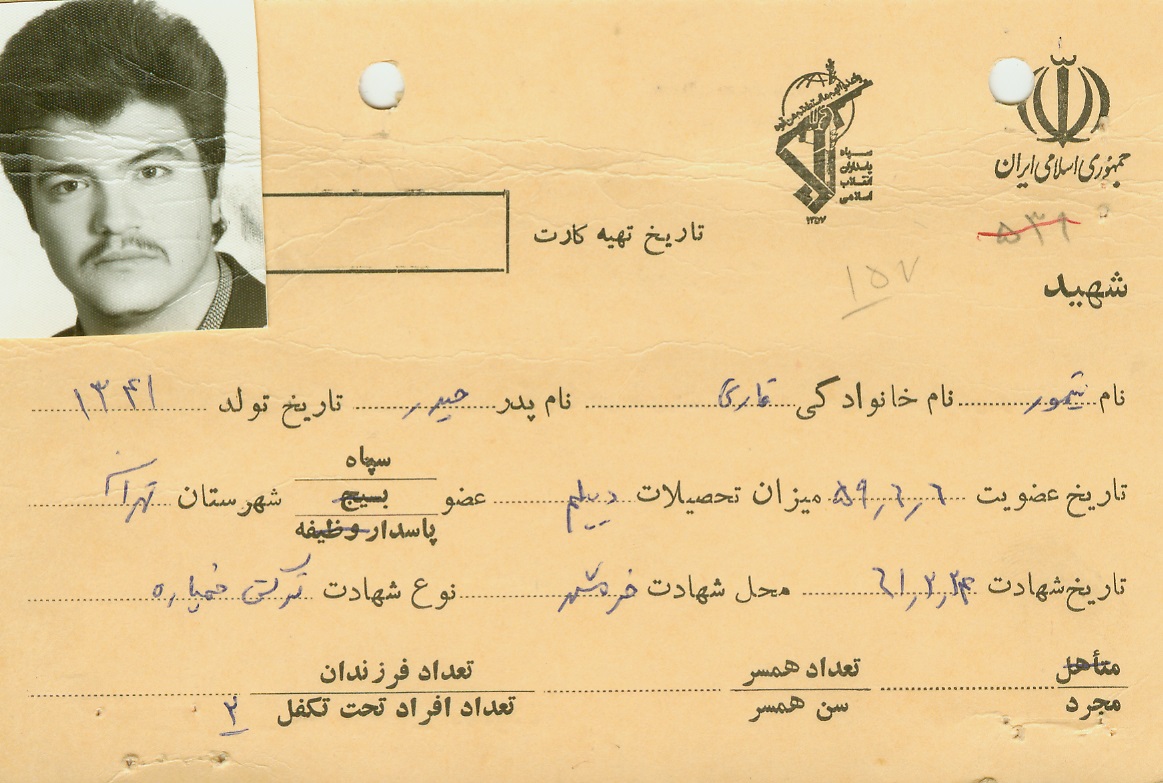 جمهوری اسلامی ایران
سپاه
پاسداران
انقلاب
اسلامی
۱۳۵۷
۵۳۹
شهید
تاریخ تهیه کارت
۱۵۷
نام تیمور نام خانوادگی قاری نام پدر حیدر تاریخ تولد ۱۳۴۱
تاریخ عضویت ۵۹,۶,۶ میزان تحصیلات دیپلم عضو سپاه بسیج پاسدار وظیفه شهرستان تهران
تاریخ شهادت ۶۱,۲,۲۴ محل شهادت خرمشهر نوع شهادت ترکش خمپاره
متأهل تعداد همسر تعداد فرزندان
مجرد سن همسر تعداد افراد تحت تکفل ۲